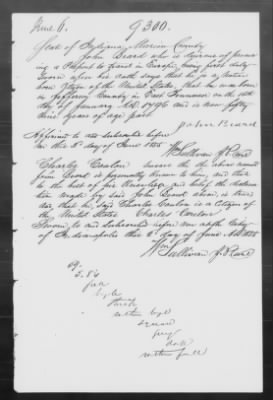 June 6.
9300.
State of Indiana, Marion County
John Beard who is desirous of procuring
a Passport to travel in Europe, being first duly
sworn upon his oath says that he is a Native
born Citizen of the United States, that he was born
in Jefferson County in East Tennessee on the
day of January A.D. 1796 and is now fifty
nine years of age past
John Beard
Affirmed to and subscribed before
me this 6th day of June 1855
Wm Sullivan J. Peace
Charles Coulon swears the above named
John Beard is personally known to him, and that
to the best of his knowledge and belief the statement
made by said John Beard above, is true
and that he, said Charles Coulon is a Citizen of
the United States Charles Coulon
Sworn to and subscribed before me at the City
of Indianapolis this 6th day of June A.D. 1855
Wm Sullivan J. Peace
59.
5.8½
full
high
square
dark
rather full